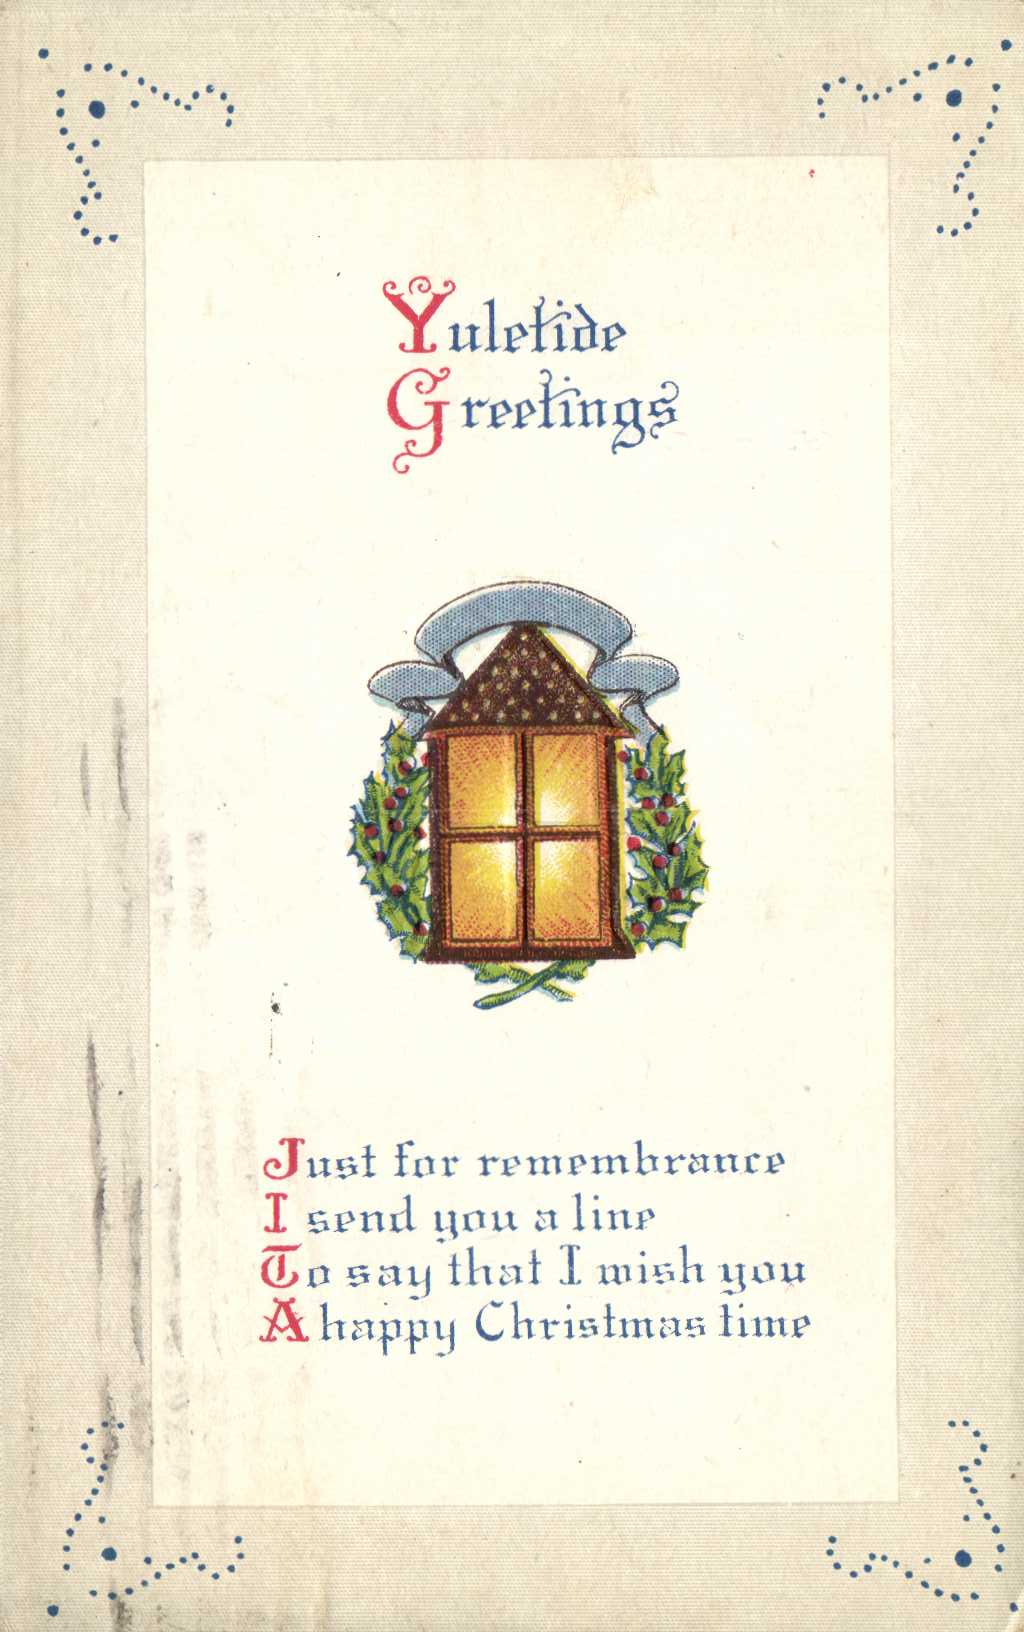 Yuletide
Greetings
Just for remembrance
I send you a line
To say that I wish you
A happy Christmas time